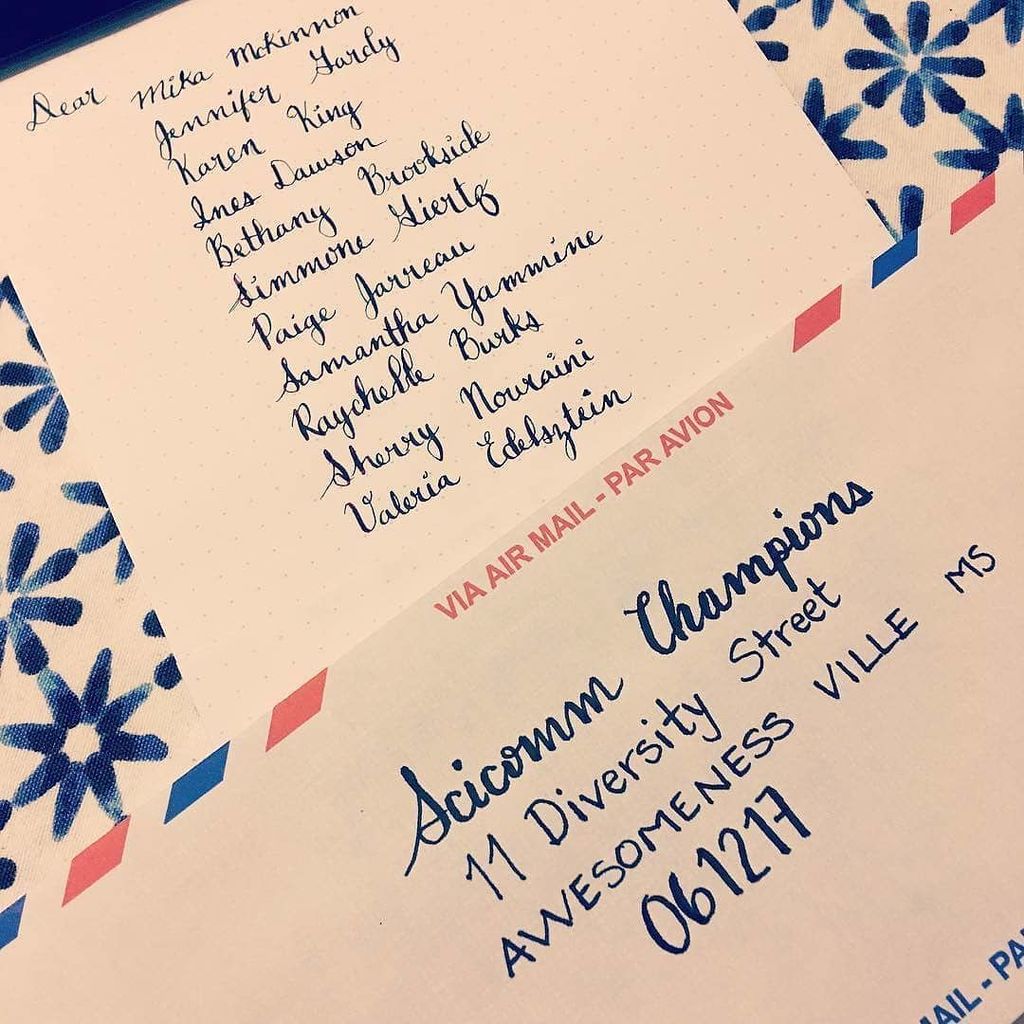 Dear Mika McKinnon
Jennifer Gardy
Karen King
Ines Dawson
Bethany Brookside
Simmone Giertz
Paige Jarreau
Samantha Yammine
Raychelle Burks
Sherry Nouraini
Valeria Edelsztein
VIA AIR MAIL - PAR AVION
Scicomm Champions
11 Diversity Street
AWESOMENESS VILLE MS
061217
MAIL - PA